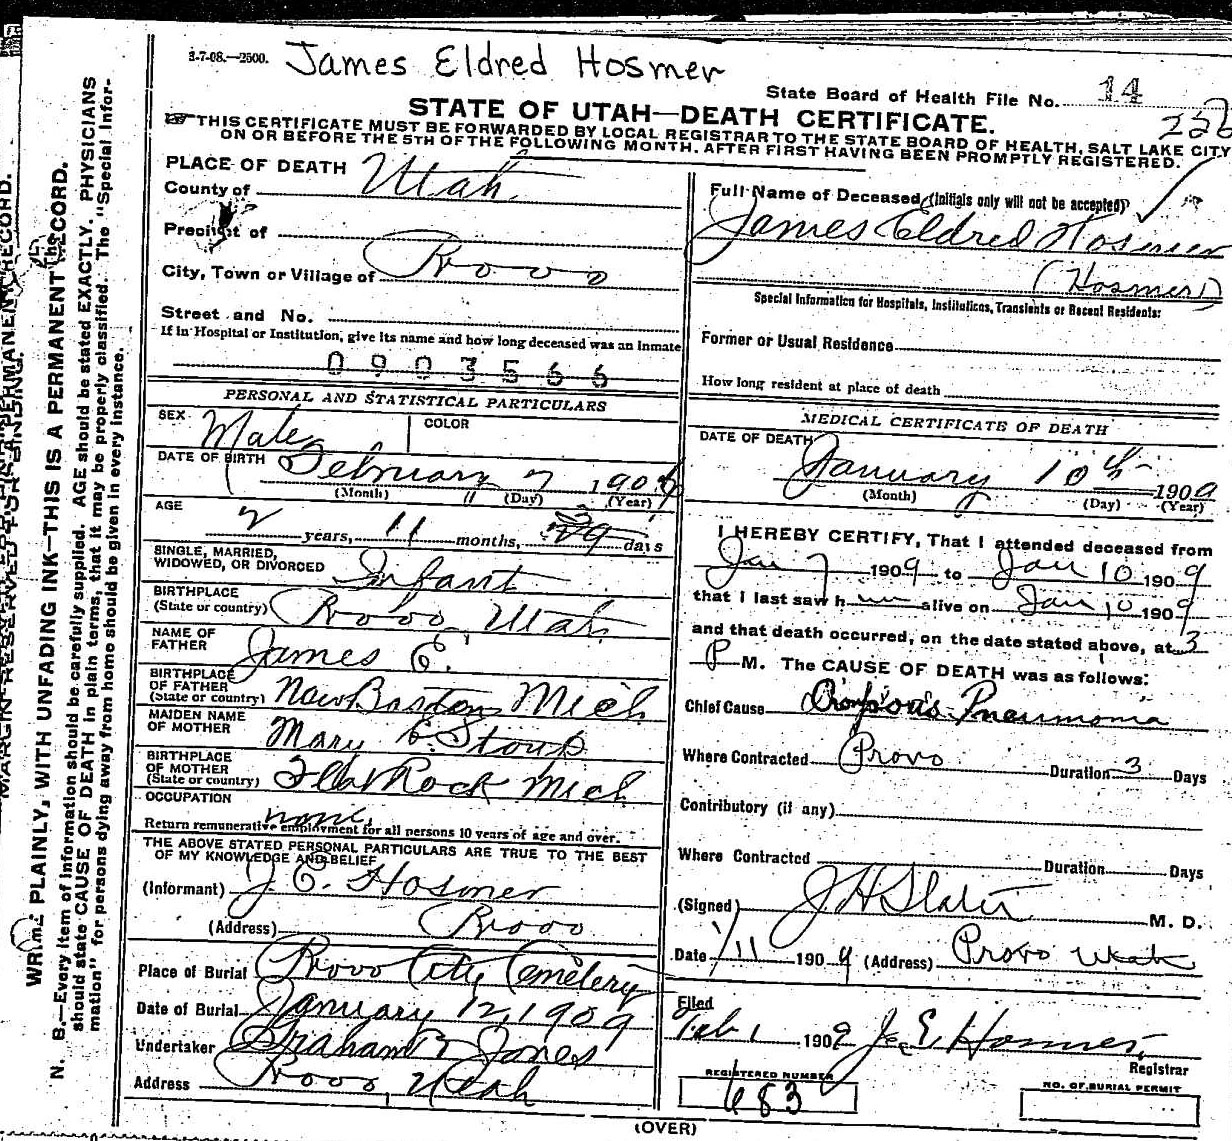 3-7-08.—2500. James Eldred Hosmer
State Board of Health File No. 14
STATE OF UTAH—DEATH CERTIFICATE.
THIS CERTIFICATE MUST BE FORWARDED BY LOCAL REGISTRAR TO THE STATE BOARD OF HEALTH, SALT LAKE CITY
ON OR BEFORE THE 5TH OF THE FOLLOWING MONTH. AFTER FIRST HAVING BEEN PROMPTLY REGISTERED.
PLACE OF DEATH
County of Utah
Precinct of
City, Town or Village of Provo
Street and No.
If in Hospital or Institution, give its name and how long deceased was an inmate
0903566
PERSONAL AND STATISTICAL PARTICULARS
SEX Male COLOR
DATE OF BIRTH February 7 190
(Month) (Day) (Year)
AGE 2 years, 11 months, days
SINGLE, MARRIED,
WIDOWED, OR DIVORCED Infant
BIRTHPLACE
(State or country) Provo Utah
NAME OF
FATHER James E.
BIRTHPLACE
OF FATHER
(State or country) New Boston Mich
MAIDEN NAME
OF MOTHER Mary E. Stout
BIRTHPLACE
OF MOTHER
(State or country) Flat Rock Mich
OCCUPATION none
Return remunerative employment for all persons 10 years of age and over.
THE ABOVE STATED PERSONAL PARTICULARS ARE TRUE TO THE BEST
OF MY KNOWLEDGE AND BELIEF
(Informant) J. E. Hosmer
(Address) Provo
Place of Burial Provo City Cemetery
Date of Burial January 12, 1909
Undertaker Graham & Jones
Address Provo Utah
Full Name of Deceased (Initials only will not be accepted)
James Eldred Hosmer
(Hosmer)
Special Information for Hospitals, Institutions, Transients or Recent Residents:
Former or Usual Residence
How long resident at place of death
MEDICAL CERTIFICATE OF DEATH
DATE OF DEATH
January 10th 1909
(Month) (Day) (Year)
I HEREBY CERTIFY, That I attended deceased from
Jan 7 1909 to Jan 10 1909
that I last saw h im alive on Jan 10 1909
and that death occurred, on the date stated above, at 3
P M. The CAUSE OF DEATH was as follows:
Chief Cause Pneumonia
Where Contracted Provo Duration 3 Days
Contributory (if any)
Where Contracted Duration Days
(Signed) J H Slater M. D.
Date 1/11 1909 (Address) Provo Utah
Filed
Feb 1 1909 J. E. Hosmer,
Registrar
REGISTERED NUMBER
683
NO. OF BURIAL PERMIT
(OVER)
WRITE PLAINLY, WITH UNFADING INK—THIS IS A PERMANENT RECORD.
N. B.—Every item of information should be carefully supplied. AGE should be stated EXACTLY. PHYSICIANS
should state CAUSE OF DEATH in plain terms, that it may be properly classified. The "Special Infor-
mation" for persons dying away from home should be given in every instance.